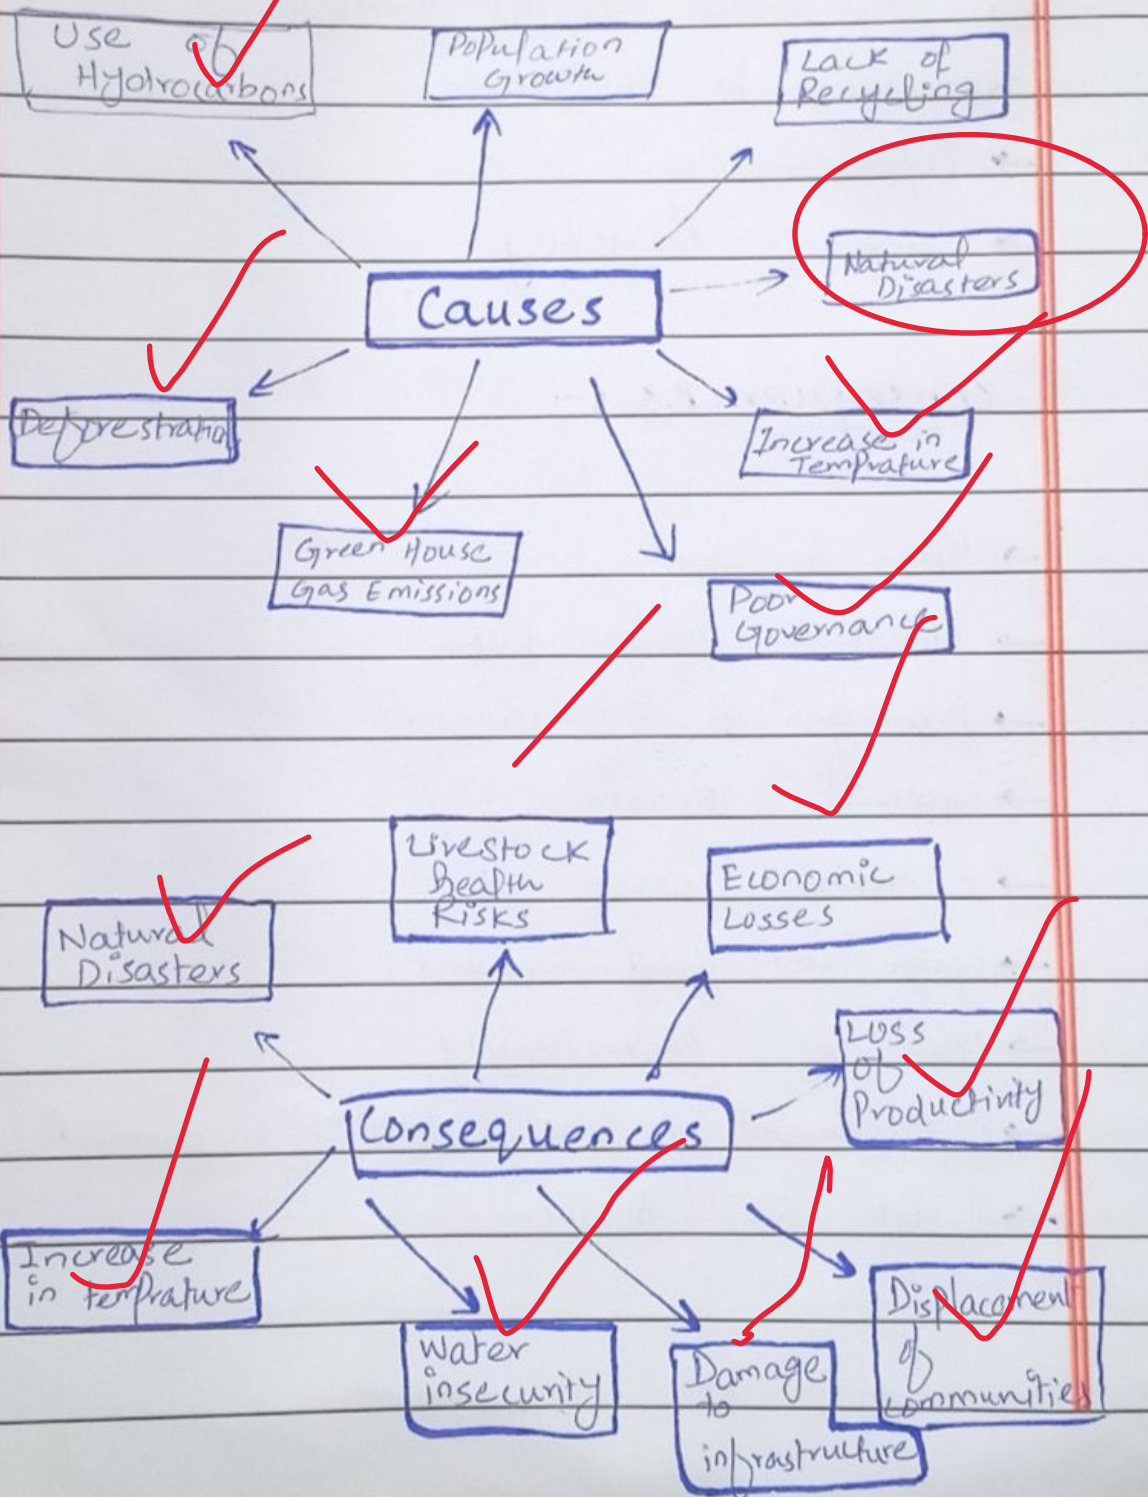 Use of
Hydrocarbons
Population
Growth
Lack of
Recycling
Natural
Disasters
Causes
Deforestratio
Increase in
Temprature
Green House
Gas Emissions
Poor
Governance
Livestock
health
Risks
Economic
Losses
Natural
Disasters
Loss
of
Productivity
Consequences
Increase
in temprature
Water
insecurity
Damage
to
infrastructure
Displacement
of
communities